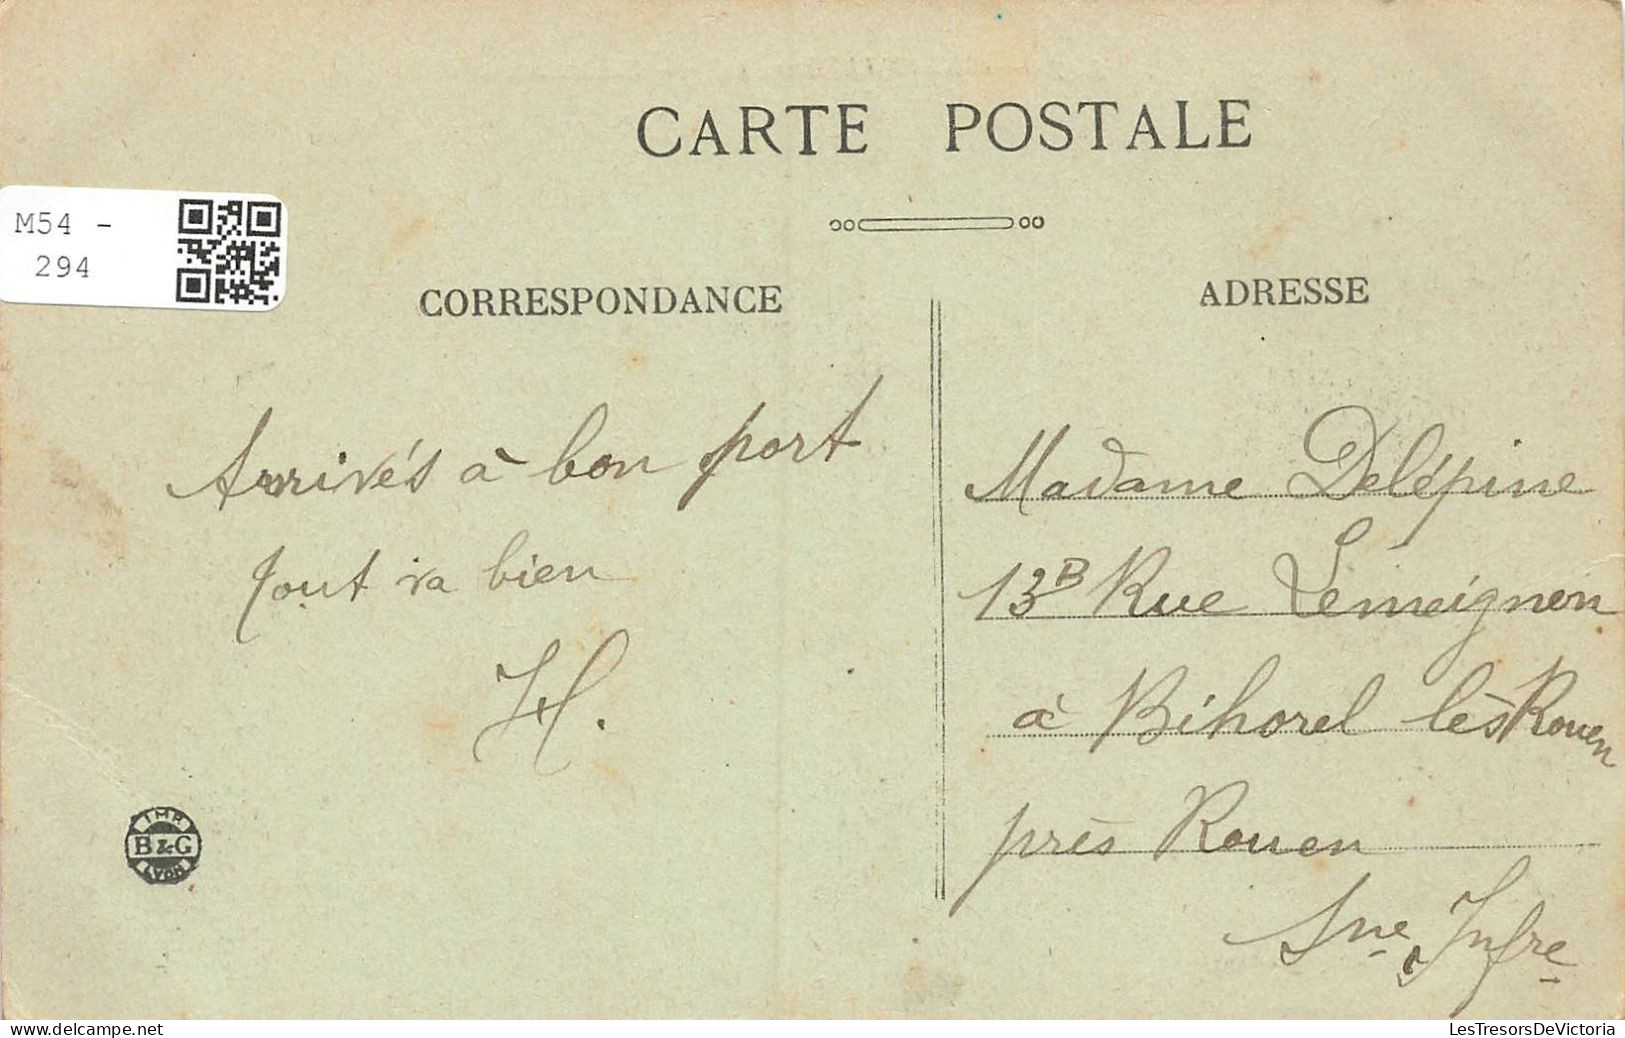 CARTE POSTALE
M54 -
294
CORRESPONDANCE
ADRESSE
Arrivés à bon port
tout va bien
H.
Madame Delépine
13B Rue Lemeignen
à Bihorel lès Rouen
près Rouen
Sne Infre
IMP
B&G
LYON
delcampe.net
LesTresorsDeVictoria